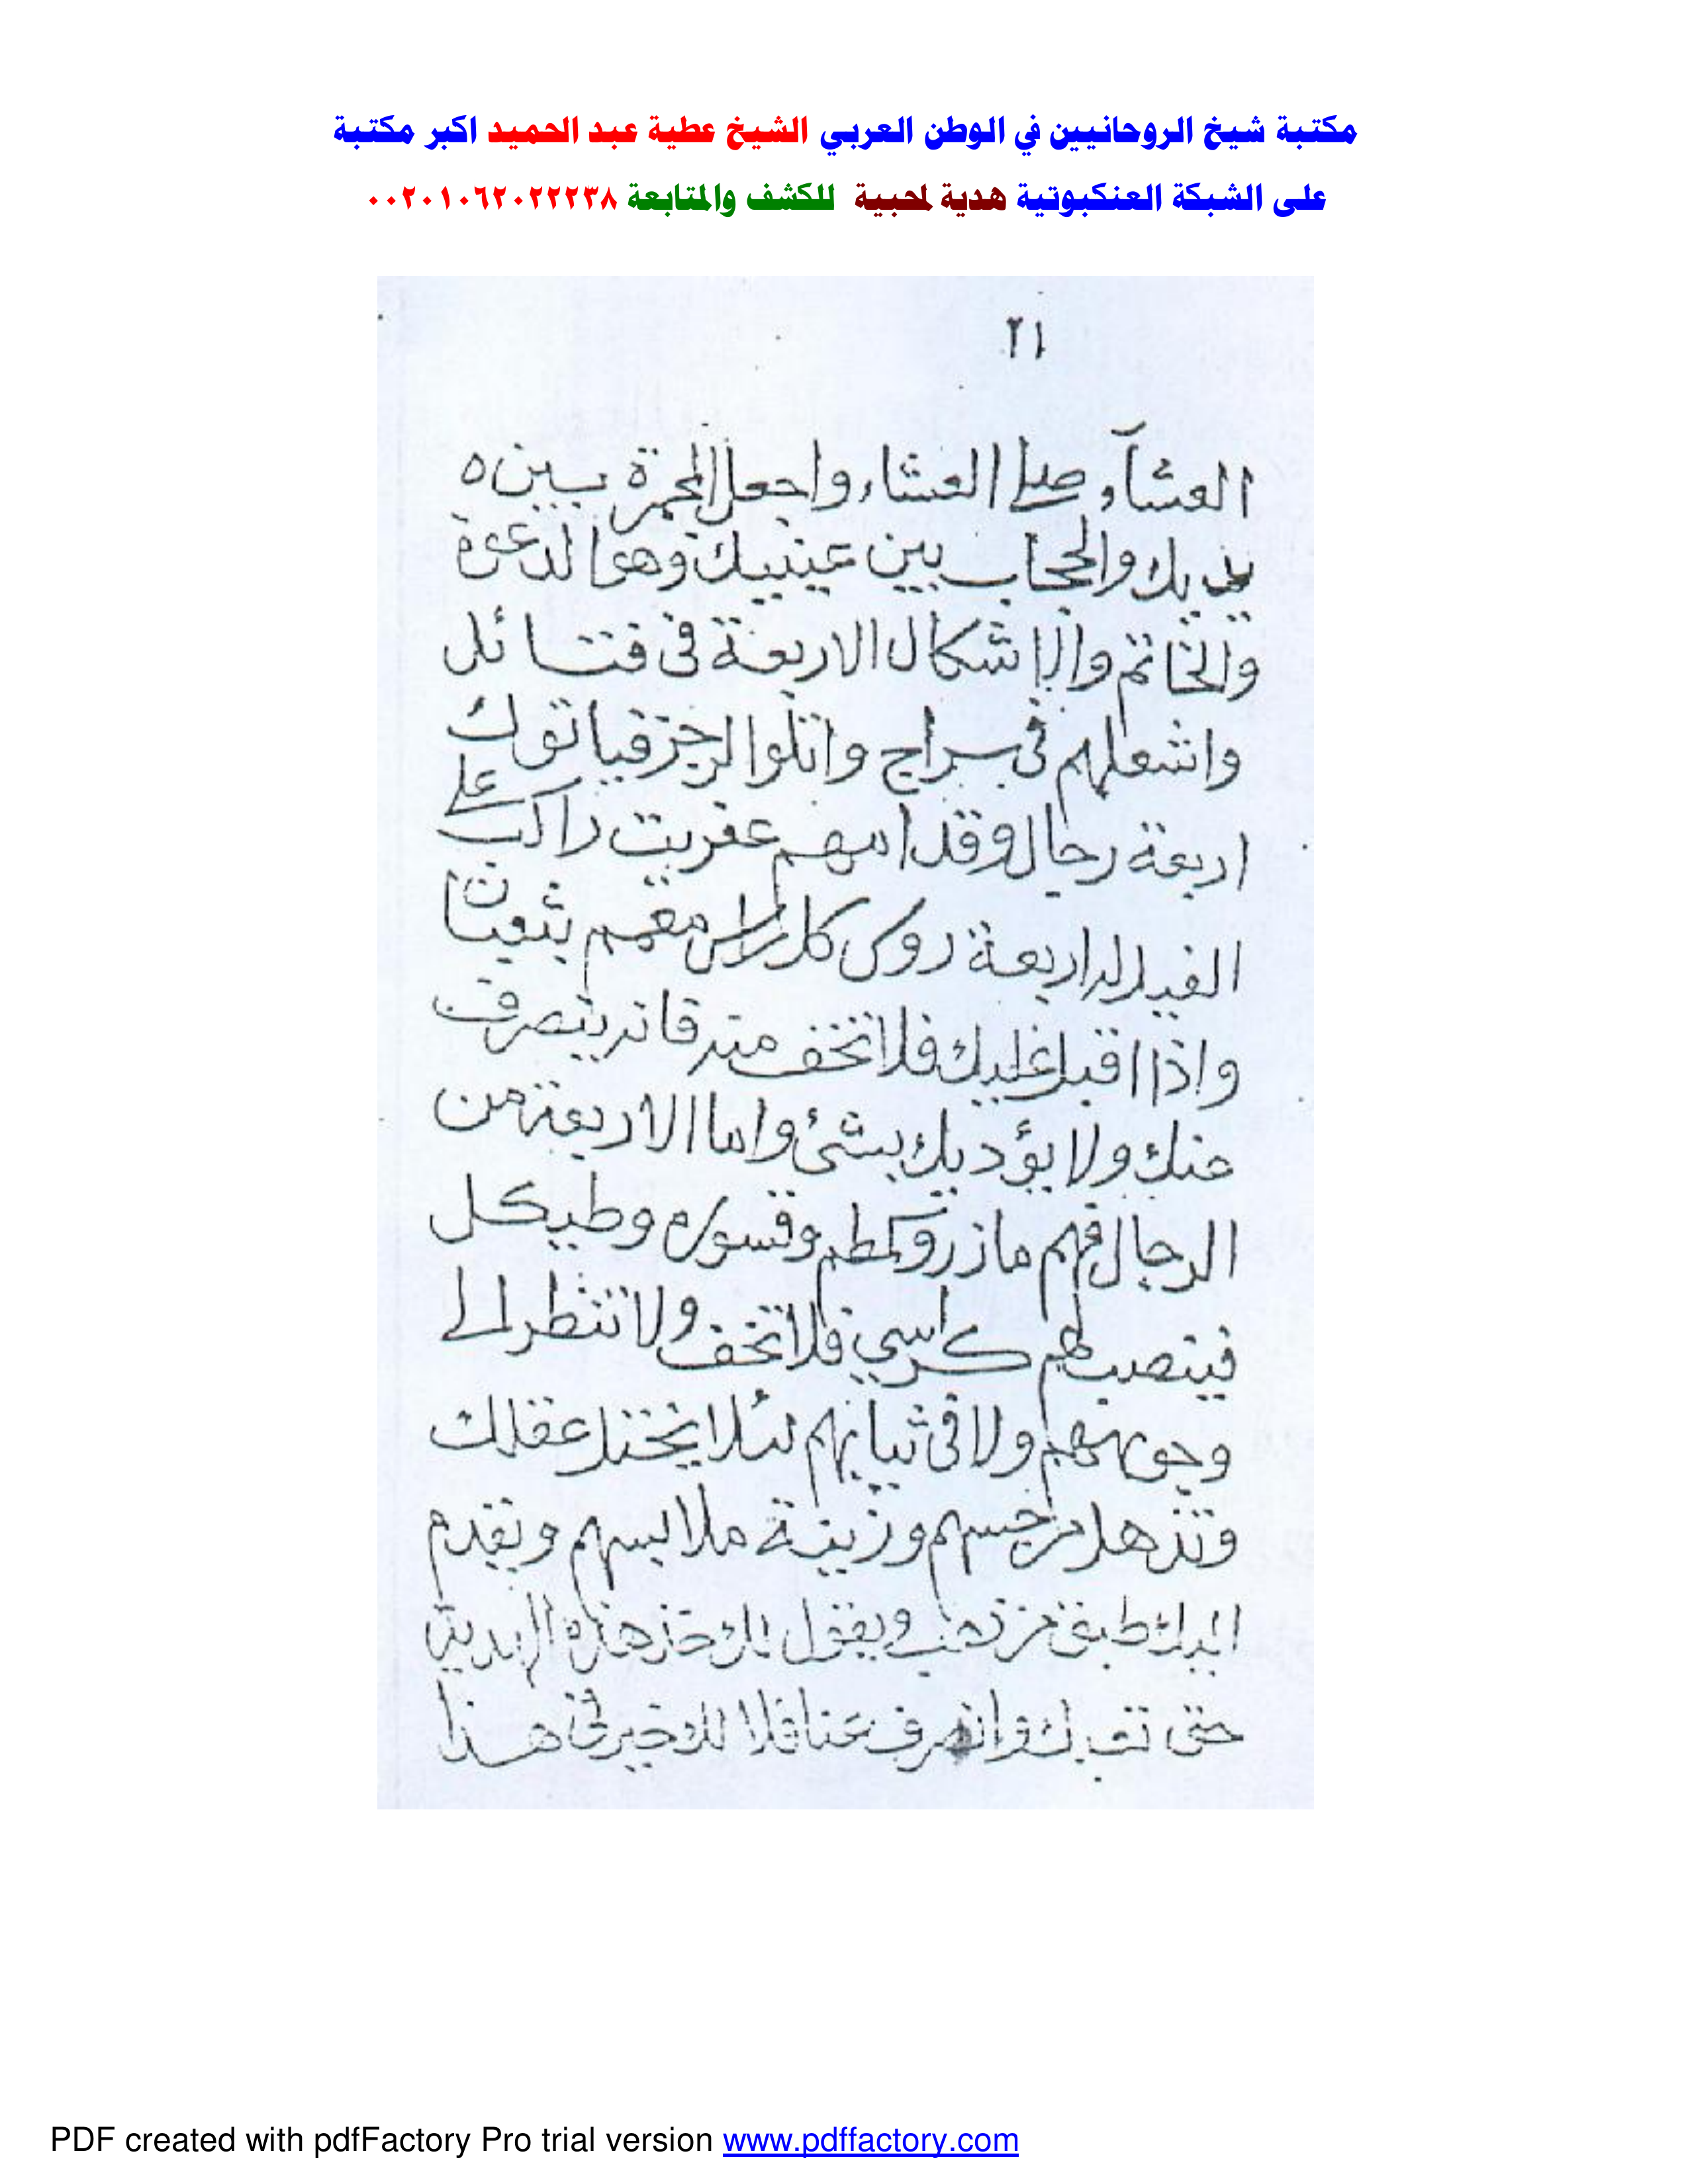 مكتبة شيخ الروحانيين في الوطن العربي الشيخ عطية عبد الحميد اكبر مكتبة
على الشبكة العنكبوتية هدية لمحبية للكشف والمتابعة ٠٠٢٠١٠٦٢٠٢٢٢٣٨
٢١
العشآء صلي العشاء واجعل المجمرة بين
يديك والحجاب بين عينيك وهو الدعوة
والخاتم والاشكال الاربعة فى فتائل
واشعلهم فى سراج واتلوا الرجز فياتوك
اربعة رجال وقدامهم عفريت راكب على
الفيل له اربعة روس كل راس معمم بثعبان
واذا اقبل عليك فلا تخف منه فانه ينصرف
عنك ولا يؤديك بشئ واما الاربعة من
الرجال فهم مازر وكمطم وقسورة وطيكل
فينصب لهم كراسي فلا تخف ولا تنظر الى
وجوههم ولا فى ثيابهم لئلا يختل عقلك
وتذهل من جسمهم وزينة ملابسهم ويقدم
اليك طبق من ذهب ويقول لك خذ هذه الهدية
حتى وانصرف عنا فلا لك خير فى هذا
PDF created with pdfFactory Pro trial version www.pdffactory.com